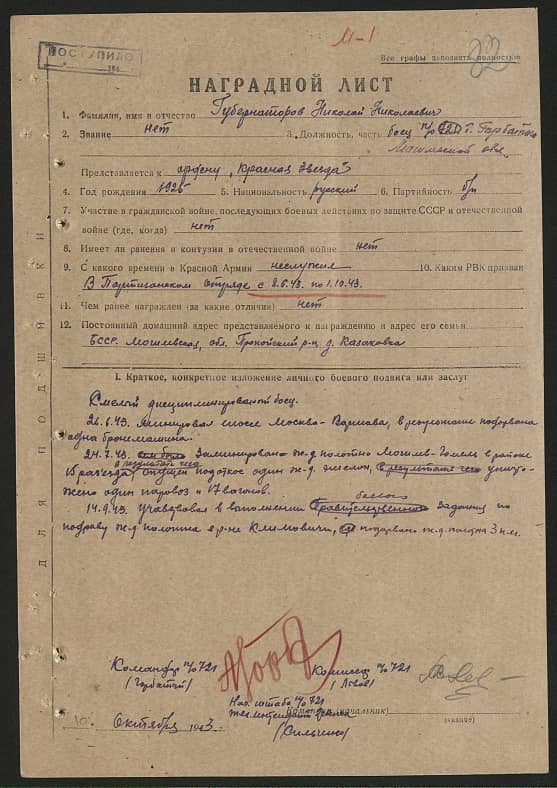 М-1
ПОСТУПИЛО
Все графы заполнять полностью
22
НАГРАДНОЙ ЛИСТ
1. Фамилия, имя и отчество Губернаторов Николай Николаевич
2. Звание нет 3. Должность, часть боец п/о г. Горбатого
Могилевской обл.
Представляется к ордену „Красная Звезда"
4. Год рождения 1926 5. Национальность русский 6. Партийность б/п
7. Участие в гражданской войне, последующих боевых действиях по защите СССР и отечественной
войне (где, когда) нет
8. Имеет ли ранения и контузии в отечественной войне нет
9. С какого времени в Красной Армии неслужил 10. Каким РВК призван
В Партизанском отряде с 8.6.43. по 1.10.43.
11. Чем ранее награжден (за какие отличия) нет
12. Постоянный домашний адрес представляемого к награждению и адрес его семьи
БССР. Могилевская, обл. р-н, д. Казаковка
I. Краткое, конкретное изложение личного боевого подвига или заслуг
Смелый дисциплинированый боец.
26.6.43. Минировал шоссе Москва-Варшава, в результате подорвана
одна бронмашина.
24.7.43. Заминировано ж-д полотно Могилев-Гомель в районе
в результате чего
разъезда спущен подоткос один ж-д эшелон, в результате чего уничто-
жено один паровоз и 17 вагонов.
боевого
14.9.43. Учавствовал в выполнении Правительственного задания по
подрыву ж-д полотна в р-не Климовичи, подорвано ж-д полотна 3 к.м.
Командир п/о 721
(Горбатый)
Комиссар п/о 721
(Львов)
Нач. штаба п/о 721
Командир (начальник)
(звание)
10. Октября 1943.
ДЛЯ ПОДШИВКИ